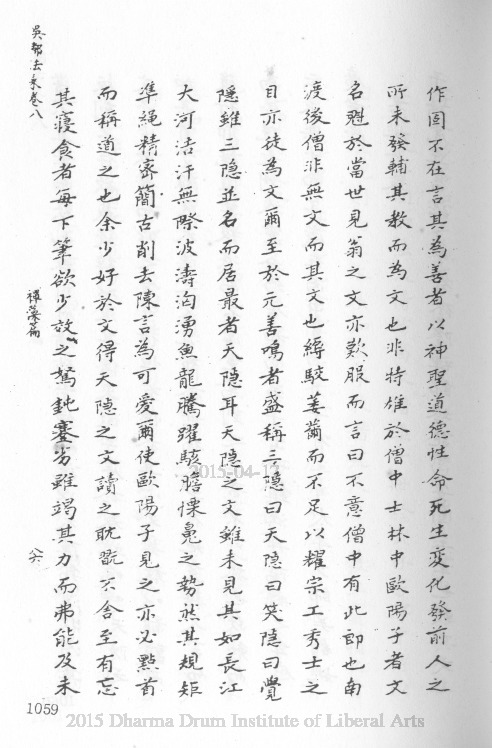 吳都法乘卷八
作固不在言其為善者以神聖道德性命死生變化發前人之
所未發輔其教而為文也非特雄於僧中士林中歐陽子者文
名魁於當世見翁之文亦歎服而言曰不意僧中有此郎也南
渡後僧非無文而其文也縟駁萎薾而不足以耀宗工秀士之
目亦徒為文爾至於元善鳴者盛稱三隱曰天隱曰笑隱曰覺
隱雖三隐並名而居最者天隐耳天隐之文雖未見其如長江
大河浩汗無際波濤洶湧魚龍騰躍駭膽慄鬼之勢然其規矩
準繩精密簡古削去陳言為可愛爾使歐陽子見之亦必點首
而稱道之也余少好於文得天隱之文讀之耽翫不舍至有忘
其寢食者每下筆欲少效之駑鈍蹇劣雖竭其力而弗能及未
襍藻篇
八六
1059
2015-04-17
2015 Dharma Drum Institute of Liberal Arts